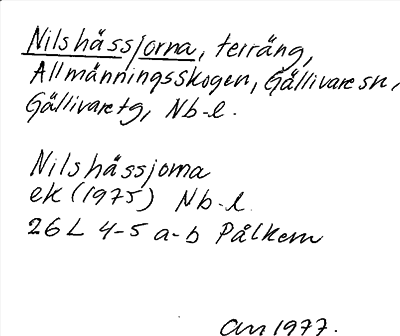 Nilshåssjorna, terräng,
Allmänningsskogen, Gällivare sn,
Gällivare tg, Nb-l.
Nilshåssjorna
ek (1975) Nb-l
26L 4-5 a-b Pålkem
an 1977.